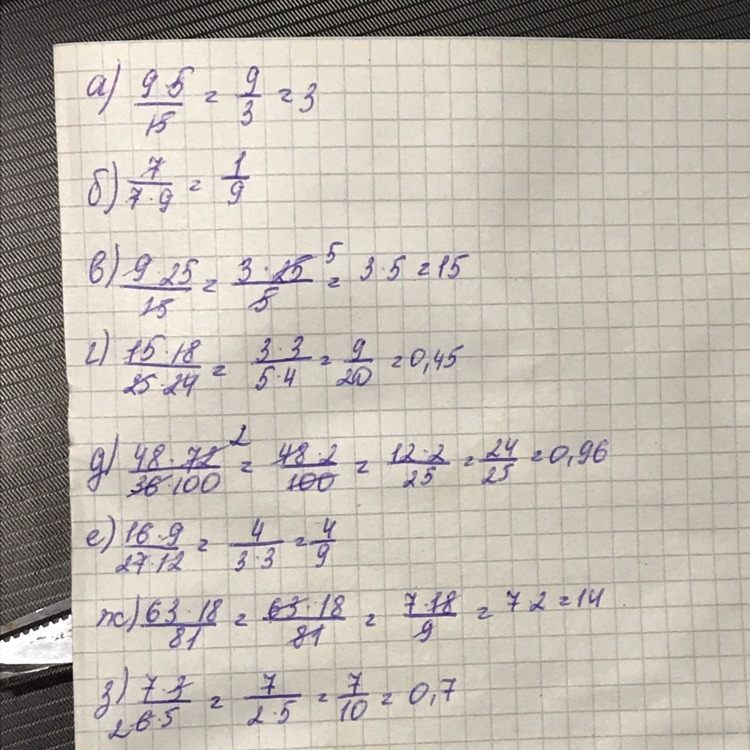 а) 9·5/15 = 9/3 = 3
б) 7/7·9 = 1/9
в) 9·25/15 = 3·25/5 5 = 3·5 = 15
г) 15·18/25·24 = 3·3/5·4 = 9/20 = 0,45
д) 48·72/36·100 2 = 48·2/100 = 12·2/25 = 24/25 = 0,96
е) 16·9/27·12 = 4/3·3 = 4/9
ж) 63·18/81 = 63·18/81 = 7·18/9 = 7·2 = 14
з) 7·3/2 6·5 = 7/2·5 = 7/10 = 0,7